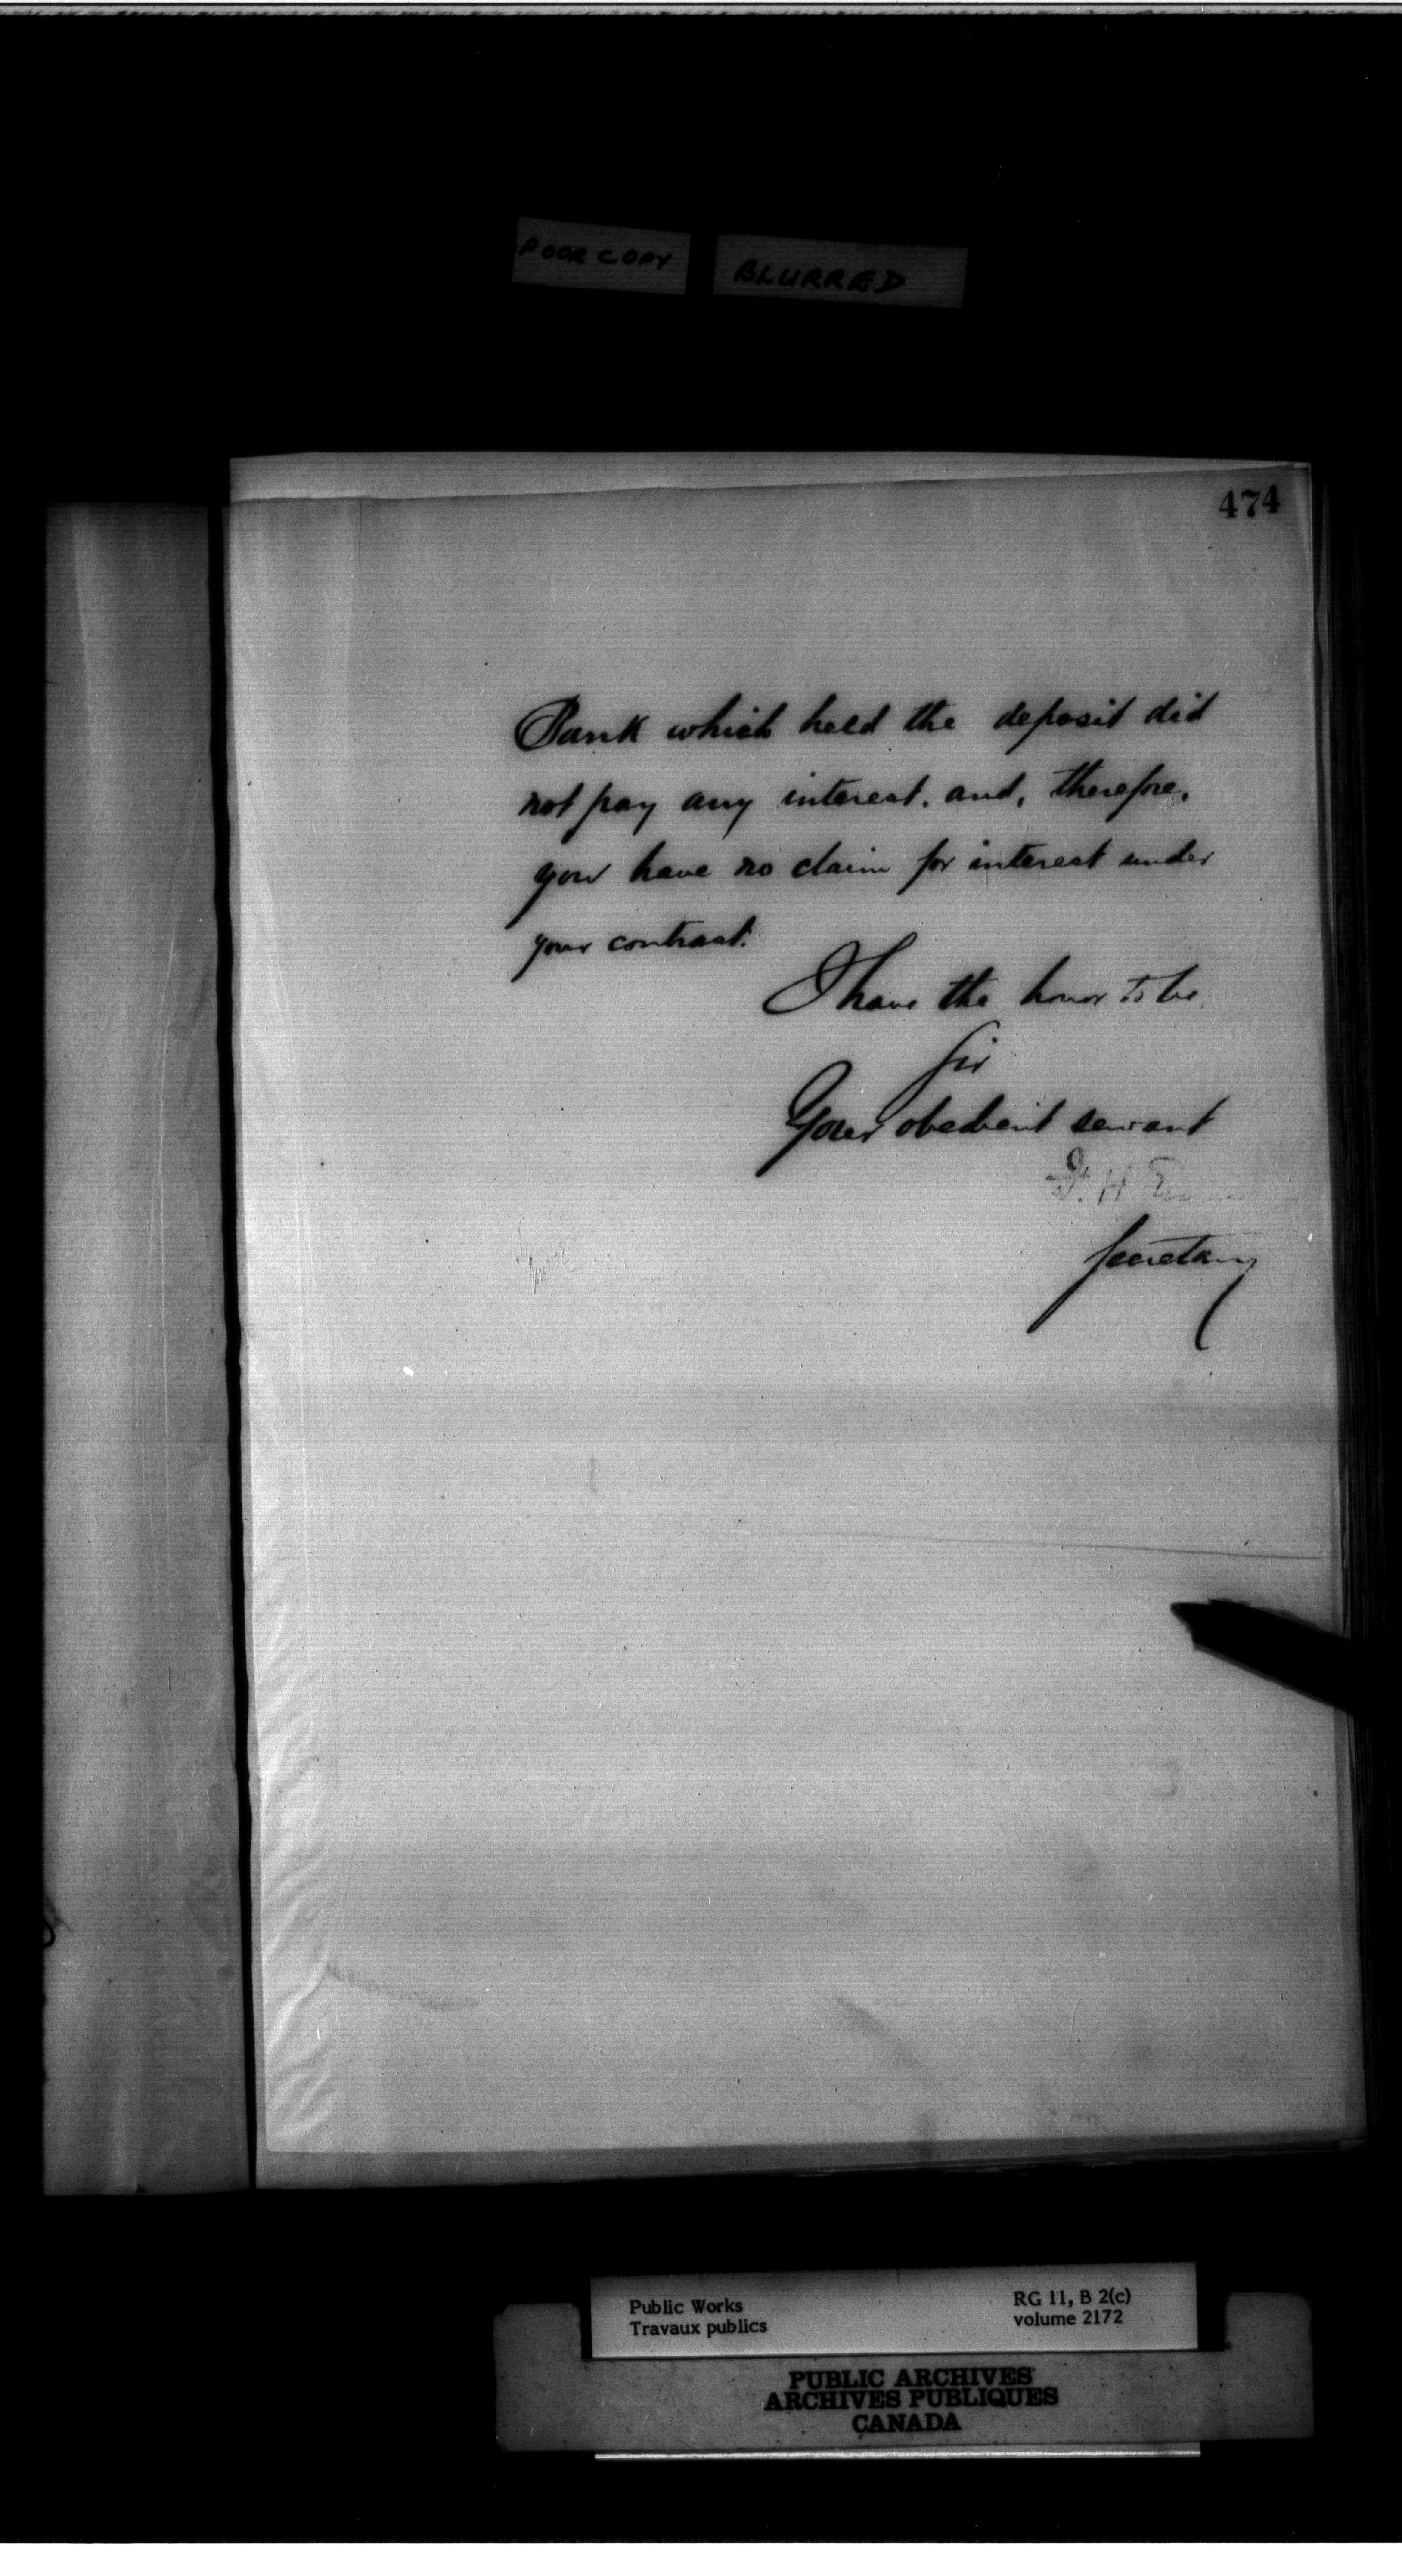 POOR COPY BLURRED
474
Bank which held the deposit did
not pay any interest, and, therefore,
you have no claim for interest under
your contract.
I have the honor to be,
Sir
Your obedient servant
H
Secretary
Public Works
Travaux publics
RG 11, B 2(c)
volume 2172
PUBLIC ARCHIVES
ARCHIVES PUBLIQUES
CANADA